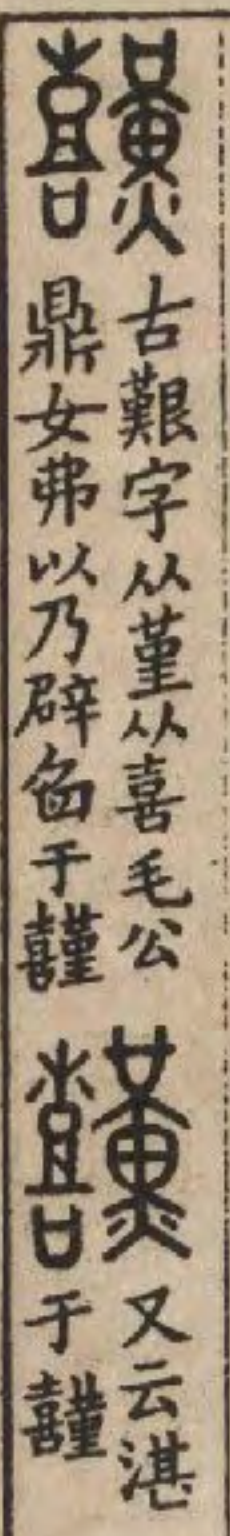 囏
古艱字从堇从喜毛公
鼎女弗以乃辟臽于囏
囏
又云湛
于囏